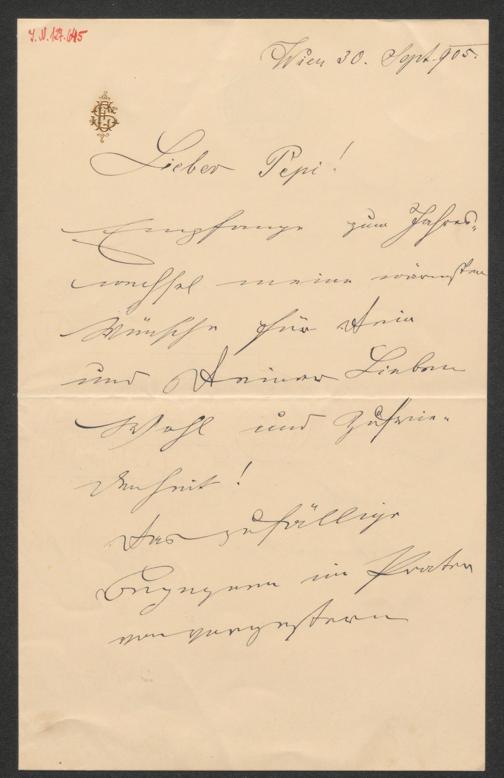 J.N. 127.645
Wien 30. Sept. 905.
Lieber Pepi!
Empfange zum Jahres-
wechsel meine wärmsten
Wünsche für Dein
und Deiner Lieben
Wohl und Zufrie-
denheit!
Das zufällige
Begegnen im Prater
von vorgestern